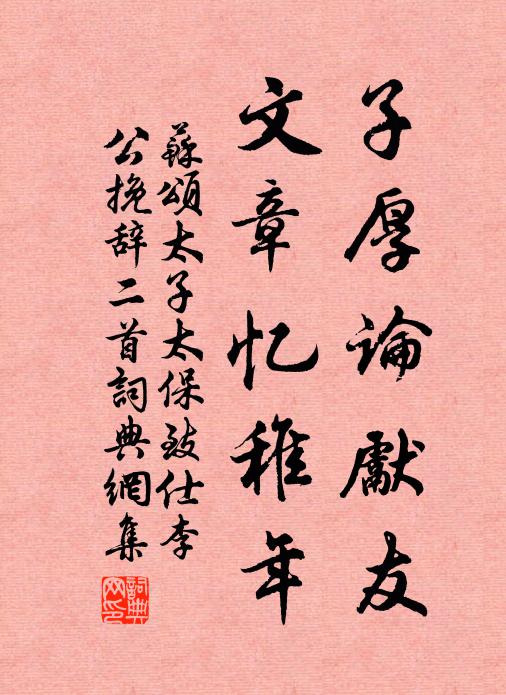 子厚論獻友
文章忆稚年
蘇頌太子太保致仕李
公挽辞二首詞典網集
詞典网印